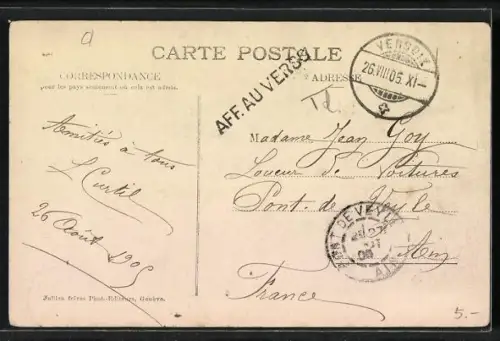 a
CARTE POSTALE
CORRESPONDANCE
pour les pays seulement où cela est autorisé.
ADRESSE
AFF. AU VERSO
VERSOIX
26.VIII.05.XI–
Amitiés à tous
L Curtil
26 Août 1905
Madame Jean Goy
Loueur de Voitures
Pont-de-Veyle
Ain
France
PONT DE VEYLE
05
AIN
Jullien frères Phot.-Editeurs, Genève.
5.-